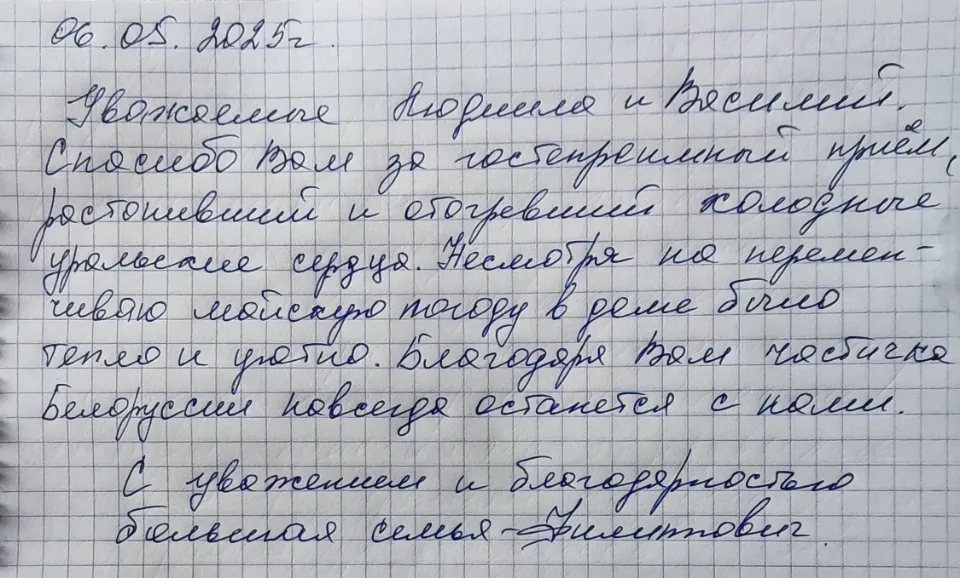 06.05.2025г.
Уважаемые Людмила и Василий.
Спасибо Вам за гостепреимный приём,
растопивший и отогревший холодные
уральские сердца. Несмотря на перемен-
чиваю майскую погоду в доме было
тепло и уютно. Благодаря Вам частичка
Белоруссии навсегда останется с нами.
С уважением и благодарностью
большая семья -